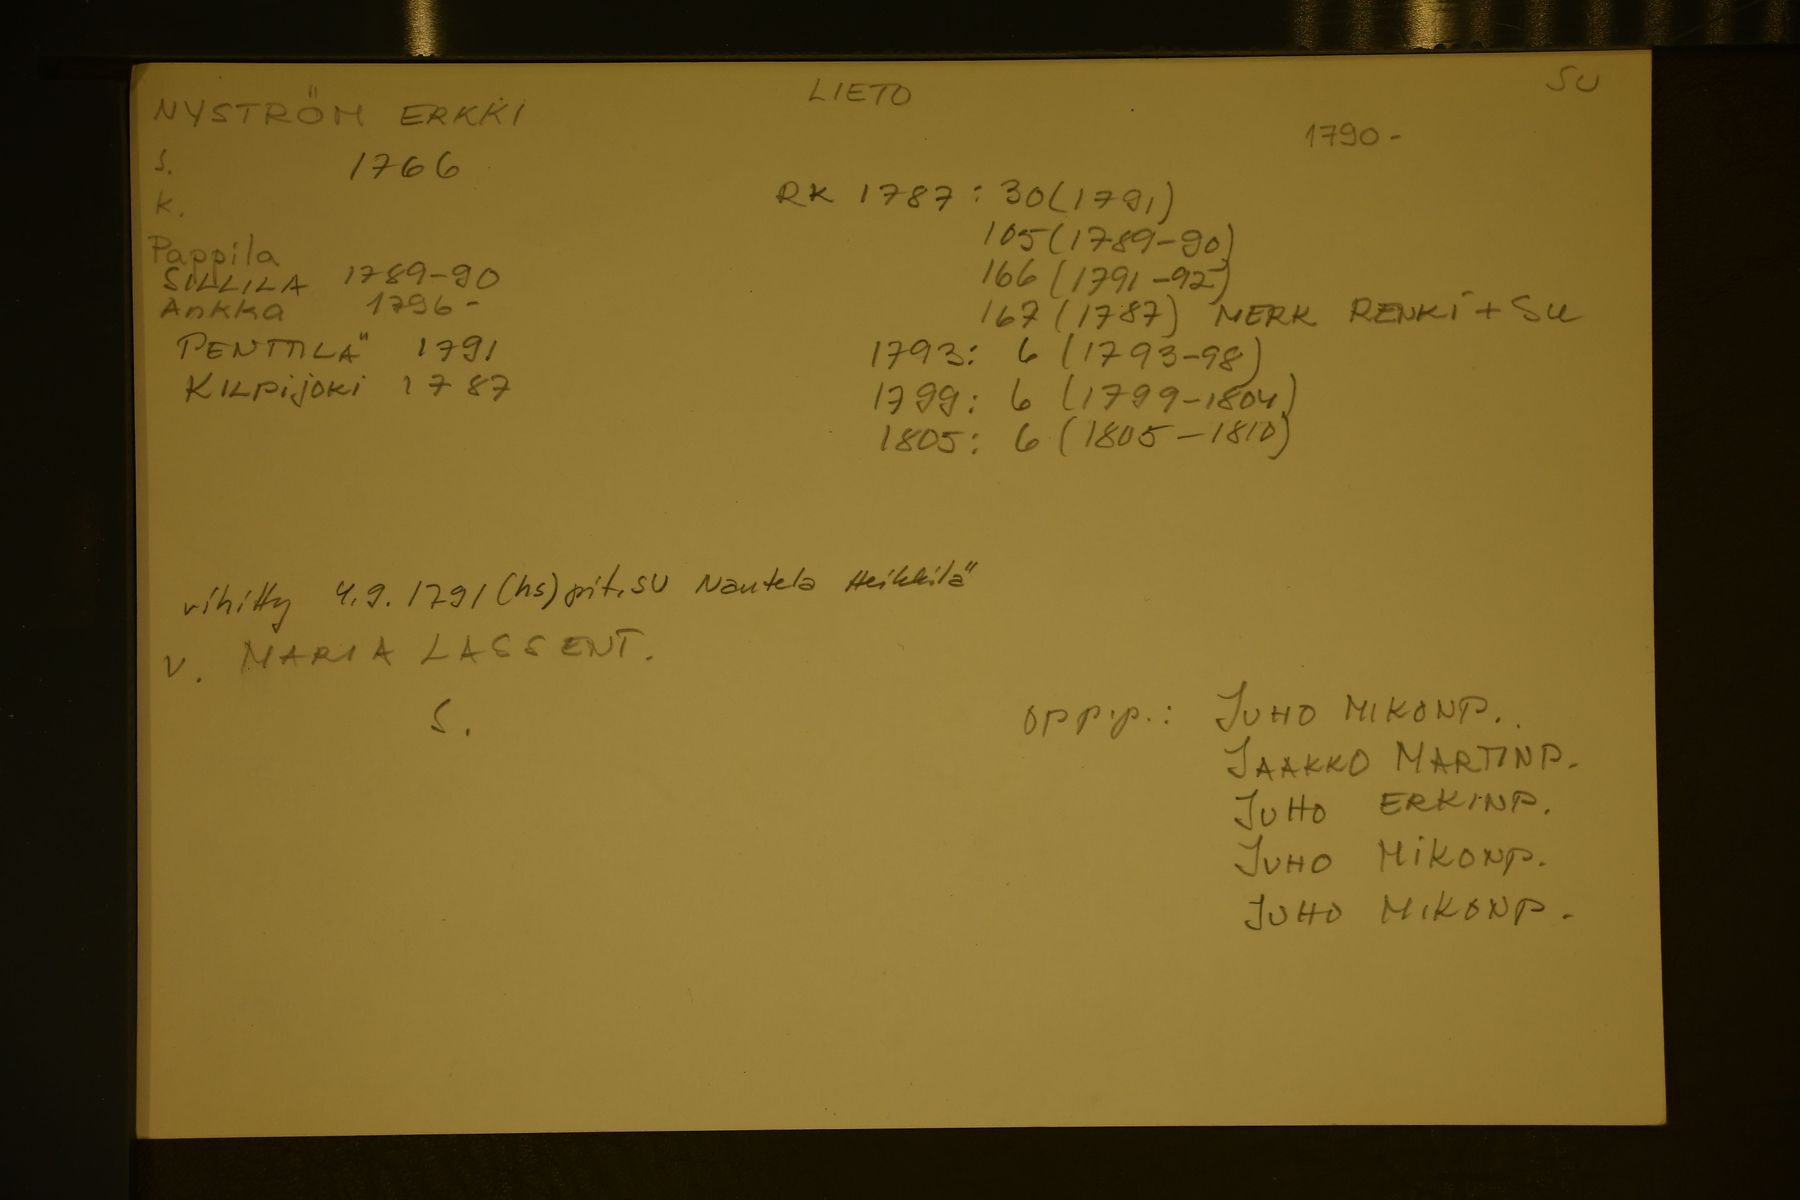 NYSTRÖM ERKKI
LIETO
SU
1790-
s. 1766
k.
Pappila
SILLILA 1789-90
Ankka 1796-
PENTTILÄ 1791
KILPIJOKI 1787
RK 1787: 30(1791)
105(1789-90)
166(1791-92)
167(1787) MERK RENKI + SU
1793: 6 (1793-98)
1799: 6 (1799-1804)
1805: 6 (1805-1810)
vihitty 4.9.1791 (hs) pit.SU Nautela Heikkilä
v. MARIA LASSENT.
S.
OPPIP.: JUHO MIKONP.
JAAKKO MARTINP.
JUHO ERKINP.
JUHO MIKONP.
JUHO MIKONP.